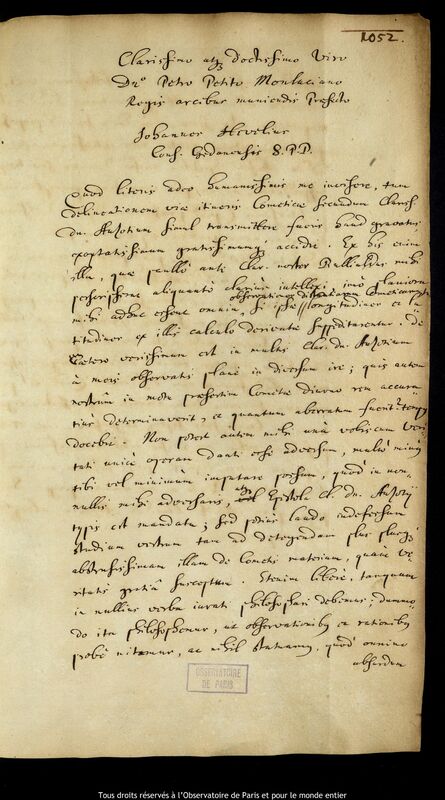 1052.
Clarissimo atq; doctissimo Viro
Dno Petro Petito Monluciano
Regis arcibus muniendis Præfecto
Johannes Hevelius
Cons. Gedanensis S. P. D.
Quod literis adeo humanissimis me inviseré, tum
delineationem viæ itineris Cometici secundum Clariss
dn. Auzotium simul transmittere fueris haud gravatus
exoptatissimum gratissimumq; accidit. Ex his enim
illa, quæ paullò ante Clar. noster Bullialdus mihi
perscripserat aliquantò clarius intellexi, imò clariora
mihi adhuc essent omnia, si
observationes distantiarum
longitudines et la
titudines ex illis calculo derivatæ suppeditarentur. De
cætero verissimum est in multis Clar. dn. Auzotium
à meis observatis planè in diversum ire; quis autem
nostrûm in motu præsertim Cometæ diurno rem accura
tiùs determinaverit, et quantum aberratum fuerit tempus
docebit. Non potest autem mihi unà vobiscum veri
tati unicè operam danti esse adversum, multò minùs
tibi vel minimum imputare possum, quòd in non
nullis mihi adversaris, Epistola Cl. dn. Auzoty
typis est mandata; sed potius laudo indefessum
studium vestrum tam ad detegendam plus plusq;
abstrusissimam illam de Cometis materiam, quàm ve
ritatis gratiâ susceptum. Etenim liberè, tanquam
in nullius verba jurati philosophari debemus, dummo
do ita philosophemur, ut observationibus et rationibus
probè nitamur, ac nihil statuamus, quod omnino
absurdum
OBSERVATOIRE
DE PARIS
Tous droits réservés à l'Observatoire de Paris et pour le monde entier